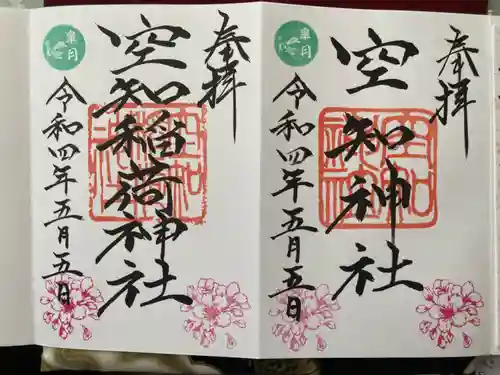 奉拝
空知神社
皐月
令和四年五月五日
奉拝
空知稲荷神社
皐月
令和四年五月五日